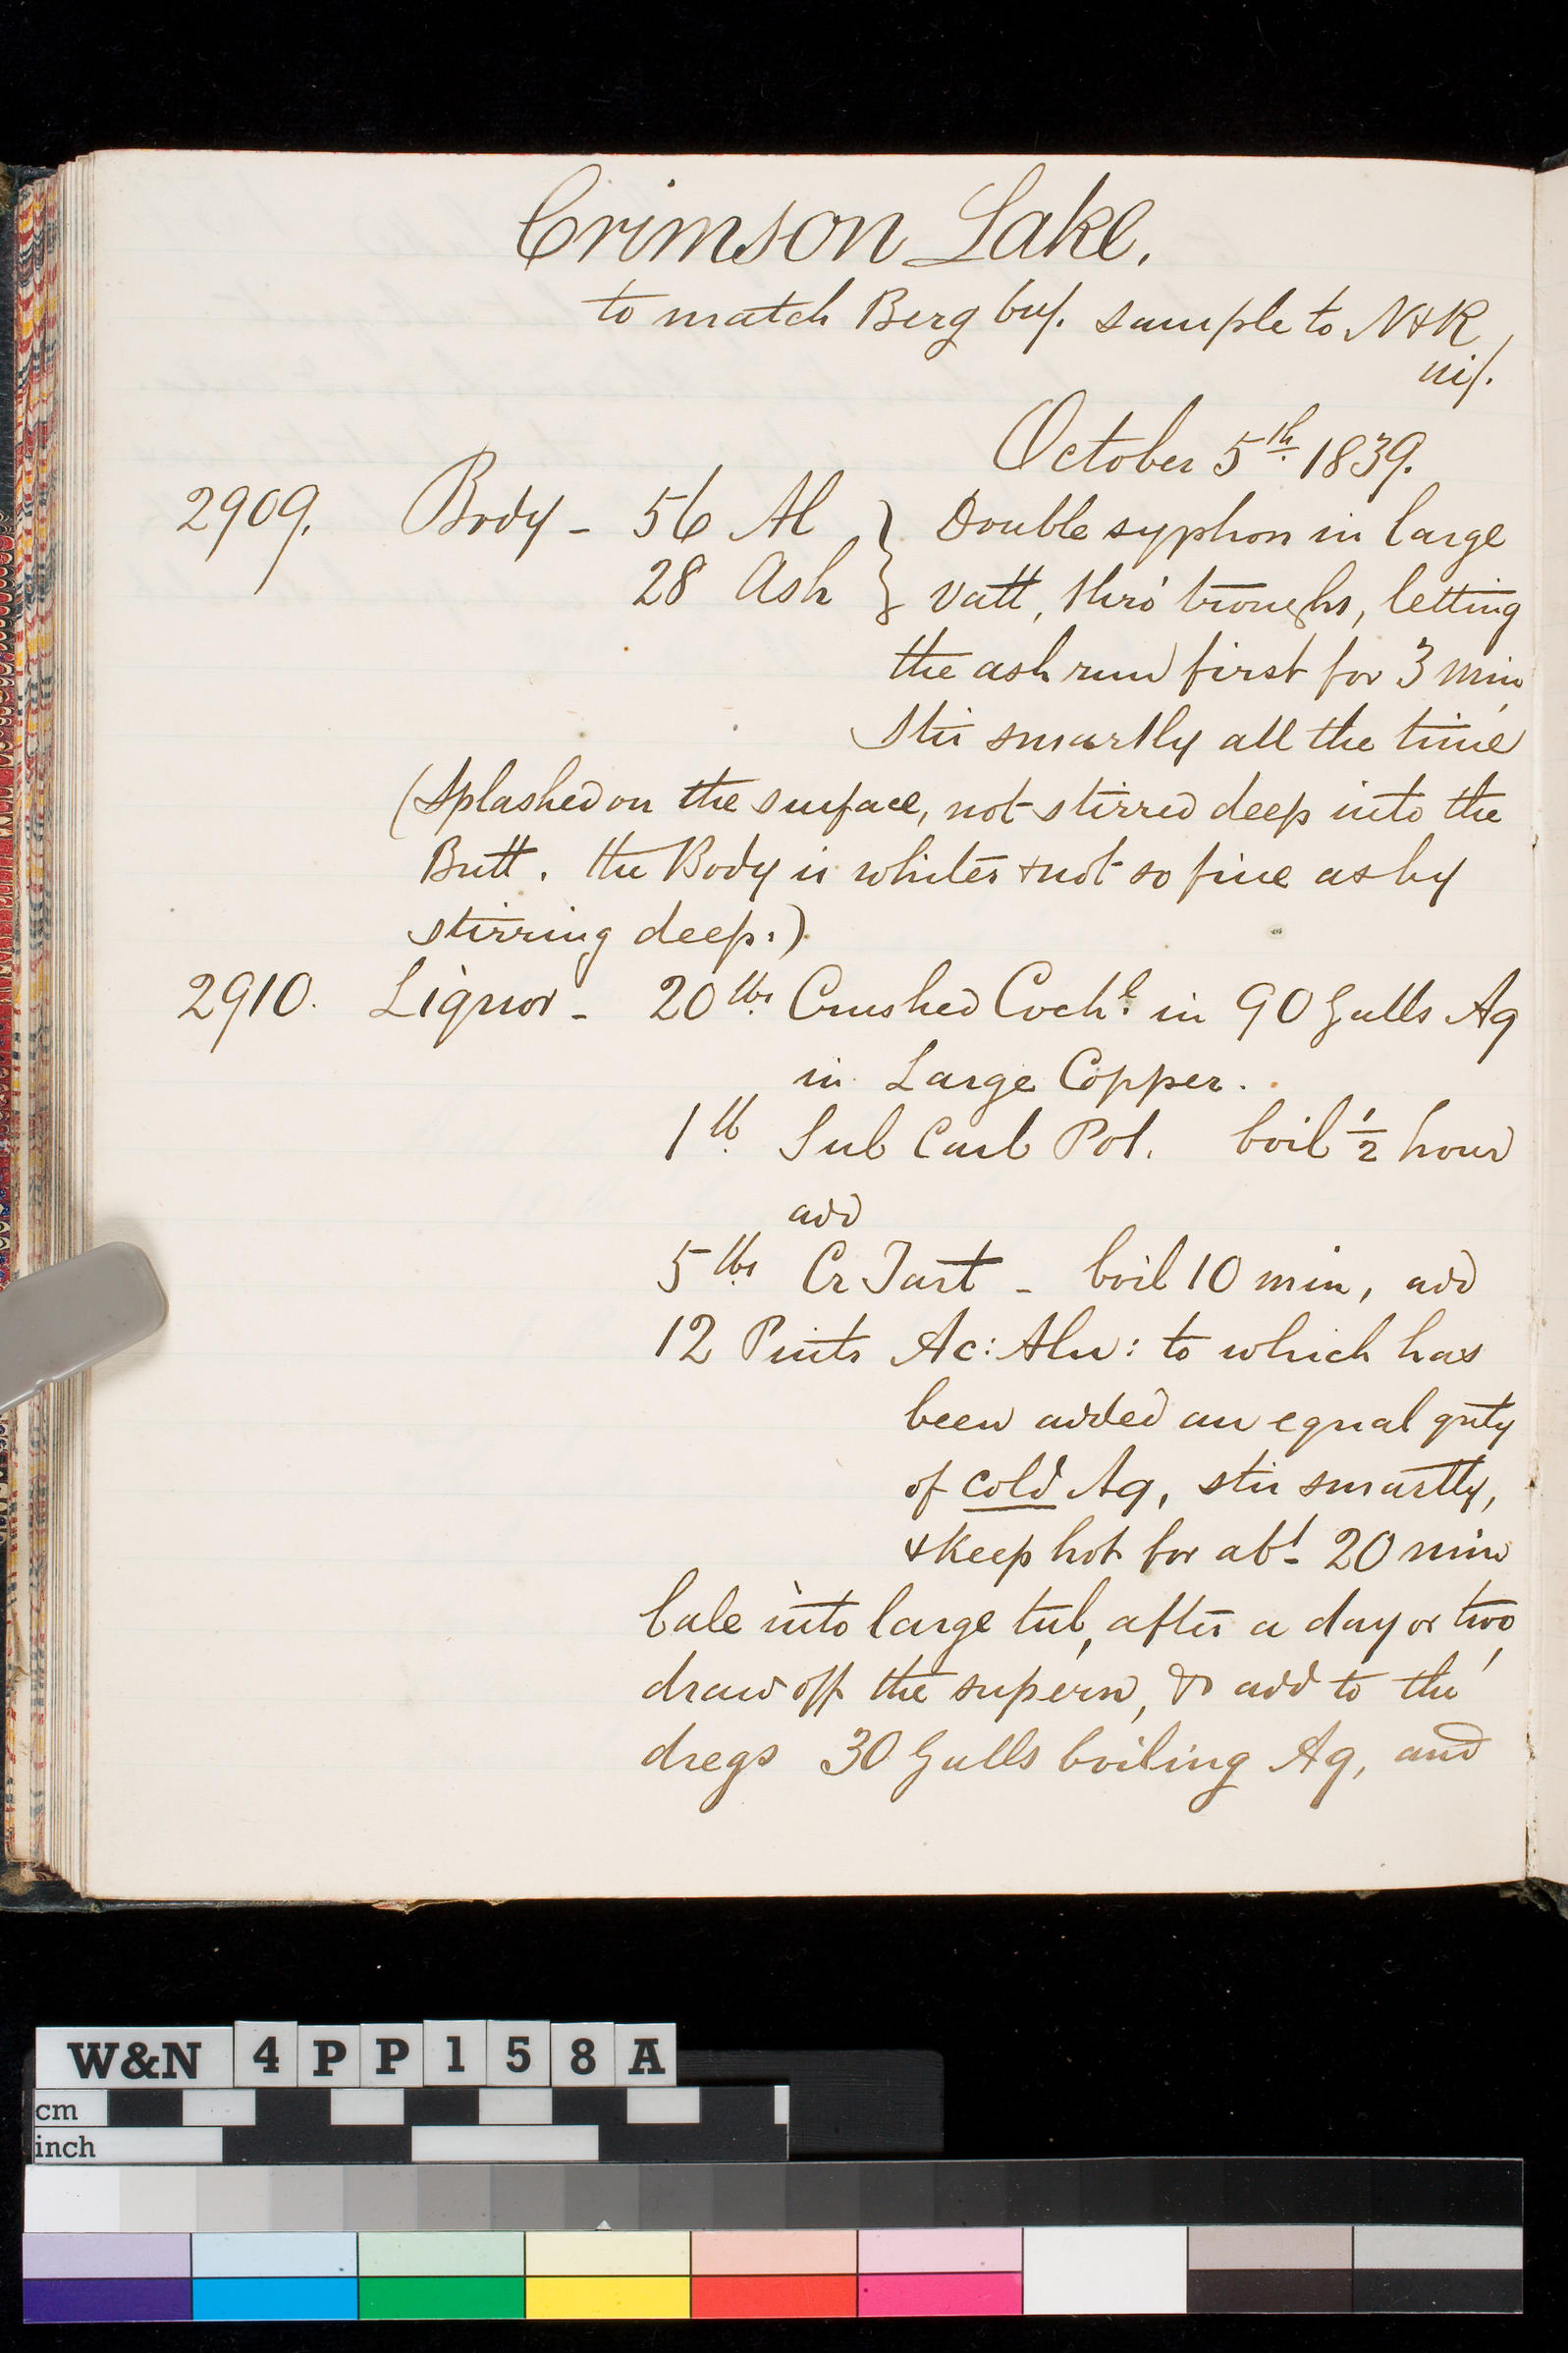 Crimson Lake.
to match Berg bu/. sample to N&K
ui/.
October 5th. 1839.
2909. Body - 56 Al } Double syphon in large
28 Ash } vatt, thro' troughs, letting
the ash run first for 3 min,
Stir smartly all the time
(Splashed on the surface, not stirred deep into the
Butt. the Body is whiter & not so fine as by
stirring deep.)
2910. Liquor - 20 lbs. Crushed Cochl. in 90 Galls Aq
in Large Copper.
1 lb. Sub Carb Pot. boil 1/2 hour
add
5 lbs. Cr Tart - boil 10 min, add
12 Pints Ac: Alu: to which has
been added an equal qnty
of cold Aq, stir smartly,
& keep hot for abt. 20 min
bale into large tub, after a day or two,
draw off the supern, & add to the
dregs 30 Galls boiling Aq, and
W&N 4PP158A
cm
inch